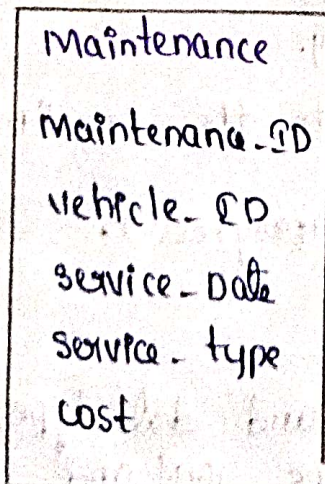 Maintenance
Maintenana_ID
Vehicle_ID
Service_Date
Service_type
cost